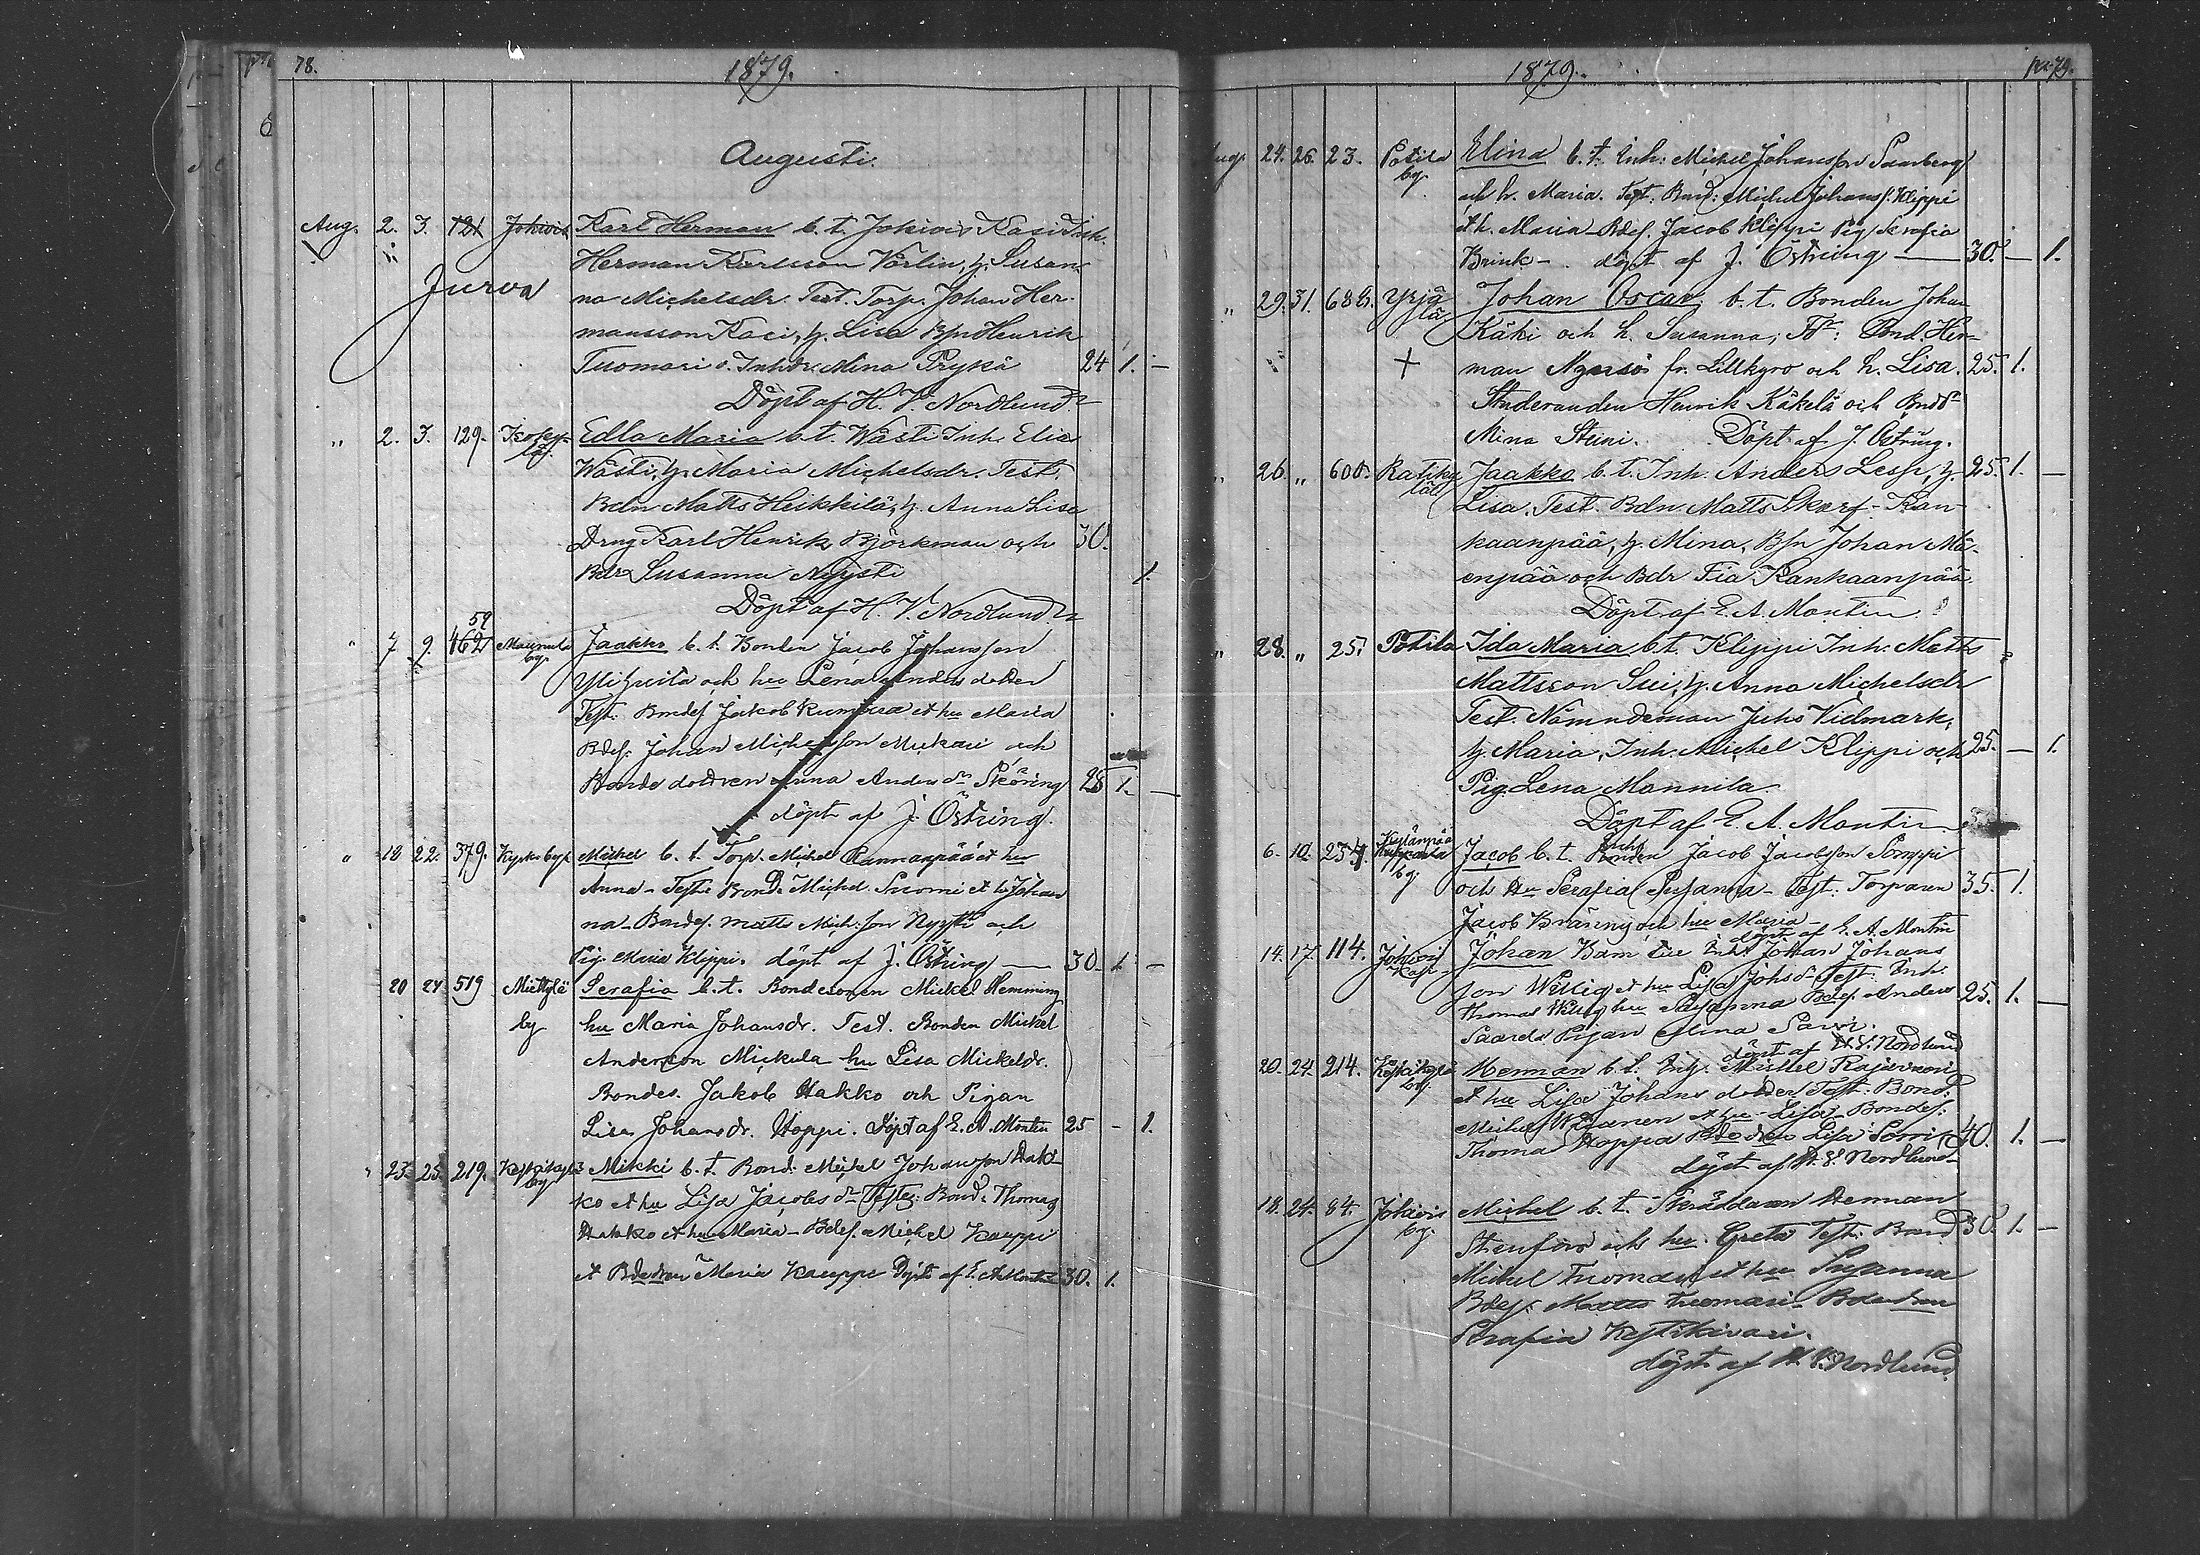 78.
1879.
Augusti.
Aug. 2. 3. 121 Jokivis Karl Herman b. t. Jokivis Kasi Inh.
Herman Karlsson Varlin, h. Susan-
Jurva
na Michelsdr. Test. Torp. Johan Her-
mansson Kasi, h. Lisa Bsn Henrik
Tuomari o. Inhdr. Mina Prykä 24 1. —
Döpt af H. V. Nordlund
" 2. 3. 129. Edla Maria b. t. Wästi Inh. Elias
Wästi, h. Maria Michelsdr. Test.
Bdn Matts Heikkilä, h. Anna Lisa
Drng Karl Henrik Björkman och 30.
Bdr Susanna Nyysti 1.
Döpt af H. V. Nordlund
59
" 7 9. 462 Mannila by. Jaakko b. t. Bonden Jacob Johansson
och hu Lena Anders dotter
Test. Bondes. Jakob et hu Maria
Bdes. Johan Michelsson Mickari och
Bonde dottren Anna Anders dr Sköring 28 1. —
döpt af J. Östring.
" 18 22. 379. Michel b. t. Torp. Michel Rannanpää et hu
Anna – Test: Bond. Michel Suomi et h. Johan
na – Bondes. Matts Mich:son Nyysti och
Pig. Maria Klippi. döpt af J. Östring — 30. 1. —
20 24 519 Miettylä by Serafia b. t. Bondesonen Mickel Hemming
hu Maria Johansdr. Test. Bonden Mickel
Anderson Mickula hu Lisa Mickelsdr.
Bondes. Jakob Hakko och Pigan
Lisa Johansdr. Hoppi. Döpt af E. A. Montin 25 – 1.
" 23. 25. 219. Mikki b. t. Bond: Michel Johansson Hak-
ko et hu Lisa Jacobs dr Testes: Bond: Thomas
Hakko et hu Maria – Bdes. Michel Kauppi
et Bdedren Maria Kauppi Döpt af E. A. Montin 30. 1.
1879.
pag. 79.
Aug. 24. 26. 23. Potila by. Elina b. t. Inh: Michel Johansson Saarberg
och h. Maria. Test. Bond: Michel Johans f. Klippi
et h. Maria – Bdes. Jacob Klippi Pig Serafia
Brink – . döpt af J. Östring — 30. — 1.
" 29. 31. 686. Johan Oscar b. t. Bonden Johan
Käki och h. Susanna; Tt: Bond. Her-
+ man fr. Lillkyro och h. Lisa. 25. 1.
Studeranden Henrik Käkelä och Bnddr
Mina Steini. Döpt af J. Östring.
" 26. " 600. Ratiky läll Jaakko b. t. Inh. Anders Lesh, h. 25. 1. —
Lisa. Test. Bdn Matts Skarf-Kan-
kaanpää, h. Mina, Bsn Johan Mä-
enpää och Bdr Fia Kankaanpää.
Döpt af E. A. Montin
" 28. " 25. Potila Ida Maria b. t. Klippi Inh. Matts
Mattsson Sui, h. Anna Michelsdr
Test. Nämndeman Juho Vidmark,
h. Maria, Inh. Michel Klippi och 25. — 1.
Pig. Lena Mannila
Döpt af E. A. Montin
6. 10. 234. Kylänpää by Jacob b. t. Inh. Jacob Jacobsson Somppi
och Hu Serafia Susanna – Test. Torparen 35. 1.
Jacob Bränn och hu Maria –
döpt af E. A. Montin
14. 17. 114. Johan Barn till Inh. Johan Johans
son Willig et hu Lisa Johs dr Test: Inh.
Thomas Willig hu Susanna Bdes. Anders 25. 1. —
Saarela Pigan Elina Savi.
döpt af H. V. Nordlund
20. 24. 214. Herman b. t. Inh. Mickel Rajavuori
et hu Lisa Johans dotter Test: Bond:
Michel et hu – Lisa – Bondes:
Thoma Hoppa Bde dtr Lisa Sorri 40. 1. —
döpt af H. V. Nordlund
18. 24. 84. Jokivis by. Michel b. t. Skräddaren Herman
Stenfors och hu. Greta Test: Bond 30. 1. —
Mickel Tuomari et hu Susanna
Bdes: Matts Tuomari – Bdedren
Serafia
döpt af H. V. Nordlund.